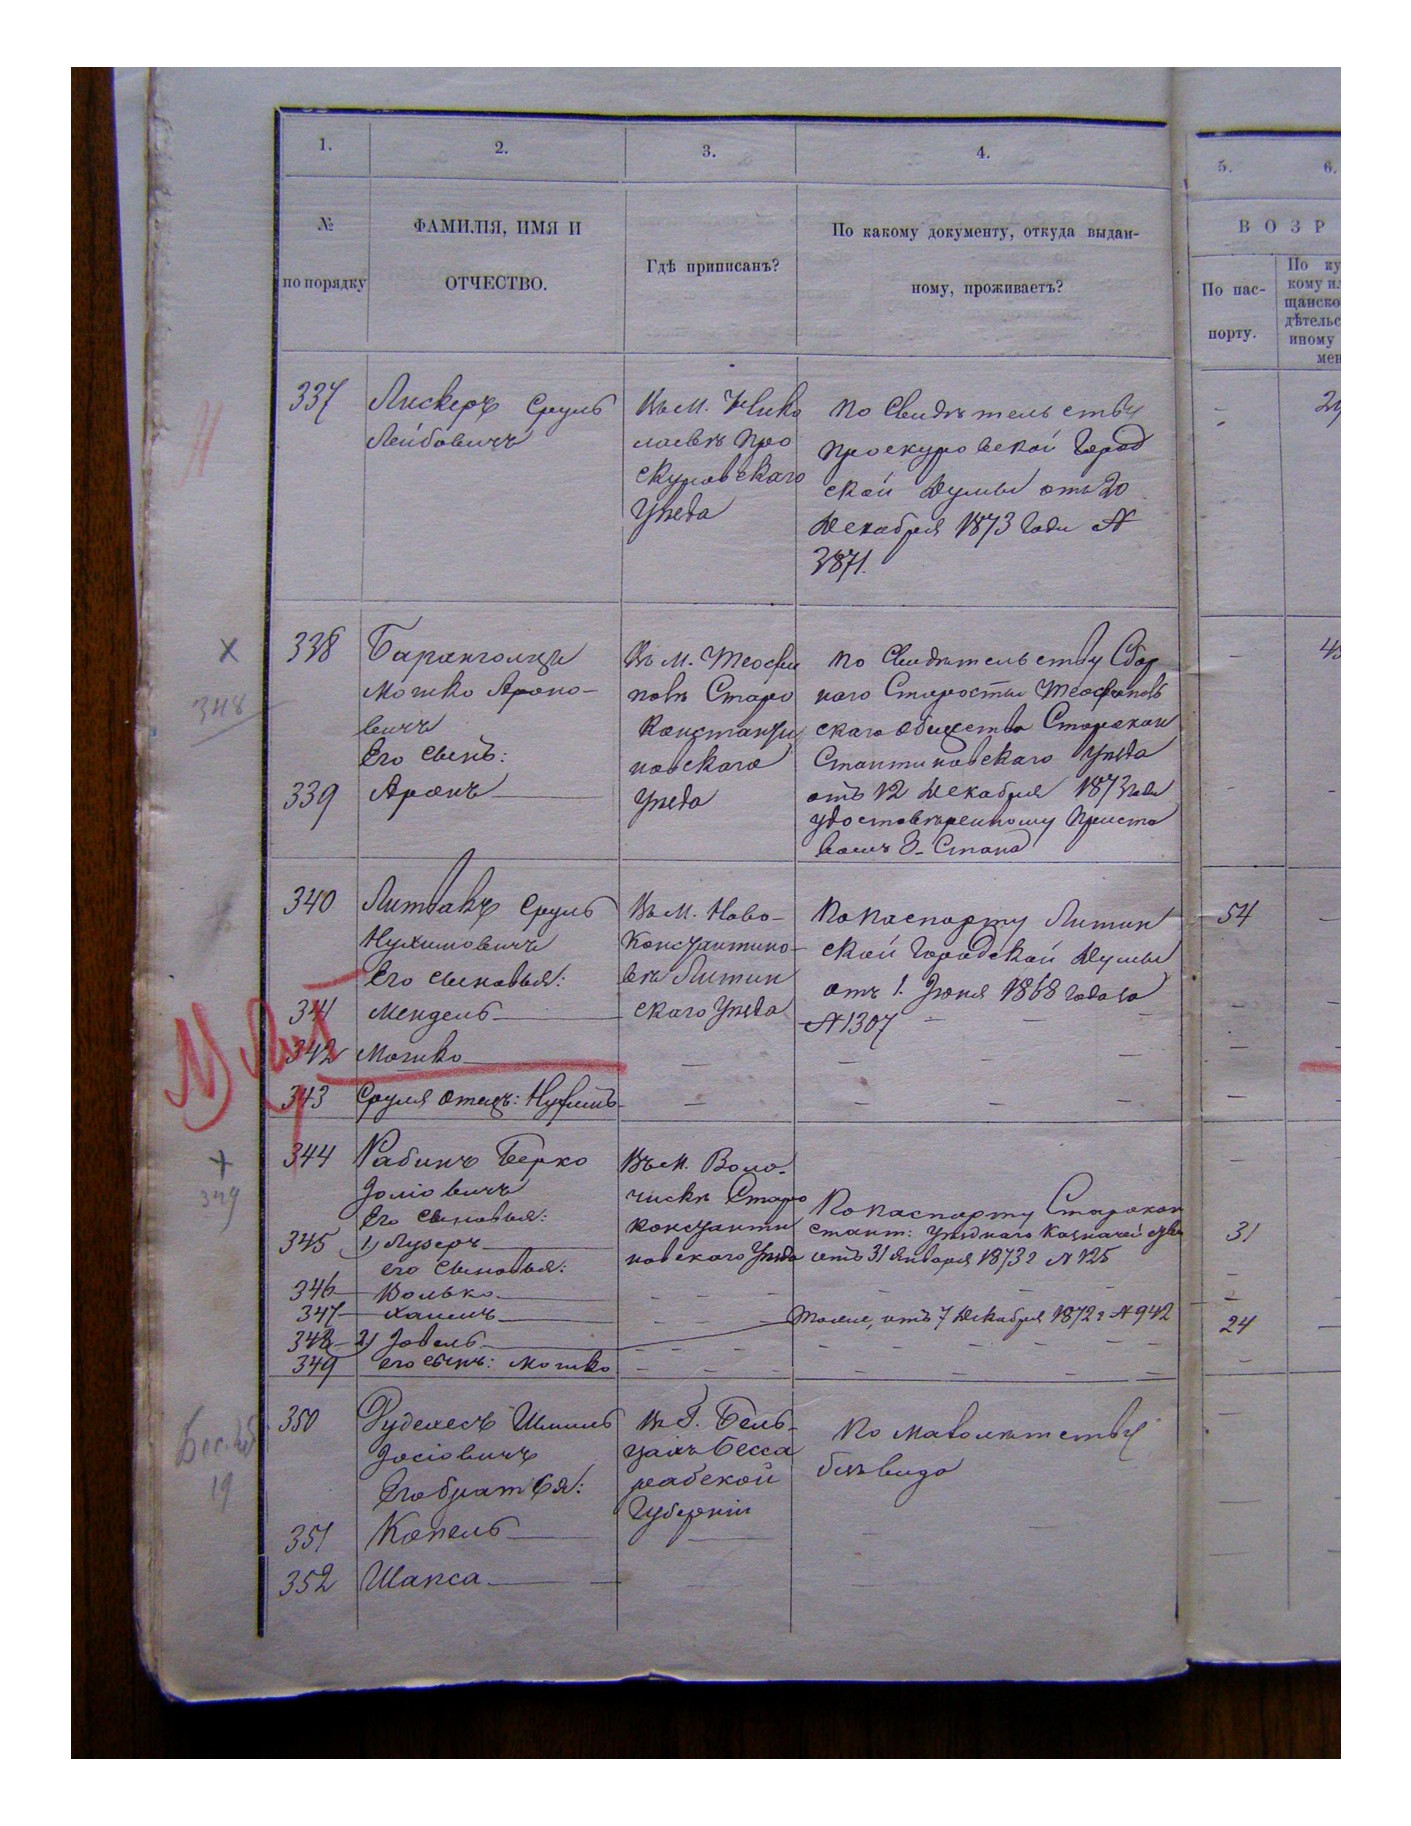 1. 2. 3. 4. 5. 6.
№ по порядку
ФАМИЛІЯ, ИМЯ И
ОТЧЕСТВО.
Гдѣ приписанъ?
По какому документу, откуда выдан-
ному, проживаетъ?
ВОЗР
По пас-
порту.
По ку
кому ил
щанско
дѣтельс
иному
мен
337 Лискеръ Сруль
Лейбовичъ
Въ м. Нико
лаевѣ Про
скуровскаго
Уѣзда
По Свидѣтельству
Проскуровской Город
ской Думы отъ 20
Декабря 1873 Года №
3871.
338 Барангольцъ
Мошко Ароно-
вичъ
Его сынъ:
339 Аронъ
Въ м. Теофи
полѣ Старо
Константи
новскаго
Уѣзда
По Свидѣтельству Сбор
наго Старосты Теофиполь
скаго Общества Старокон
стантиновскаго Уѣзда
отъ 12 Декабря 1873 года
удостовѣренному Приста
вомъ 3- Стана
348
340 Литвакъ Сруль
Нухимовичъ
Его сыновья:
341 Мендель
342 Мошко
343 Сруля отецъ: Нухимъ
Въ м. Ново-
Константино-
вѣ Литин
скаго Уѣзда
По паспорту Литин
ской Городской Думы
отъ 1. Іюня 1868 года за
№ 1307
54
344 Рабинъ Берко
Іоліовичъ
Его сыновья:
345 1) Лузеръ
его сыновья:
346 Волько
347 Хаимъ
348 2) Іовель
349 его сынъ: Мошко
Въ м. Воло-
чискѣ Старо
константи
новскаго Уѣзда
По паспорту Старокон
стант: Уѣзднаго Казначейства
отъ 31 Января 1873 г № 125
Тоже, отъ 7 Декабря 1872 г № 942
31
24
349
350 Рудехесъ Шмиль
Іосіовичъ
Его братья:
351 Копель
352 Шапса
Въ Г. Бель-
цахъ Бесса
рабской
Губерніи
По малолѣтству
безъ вида
19